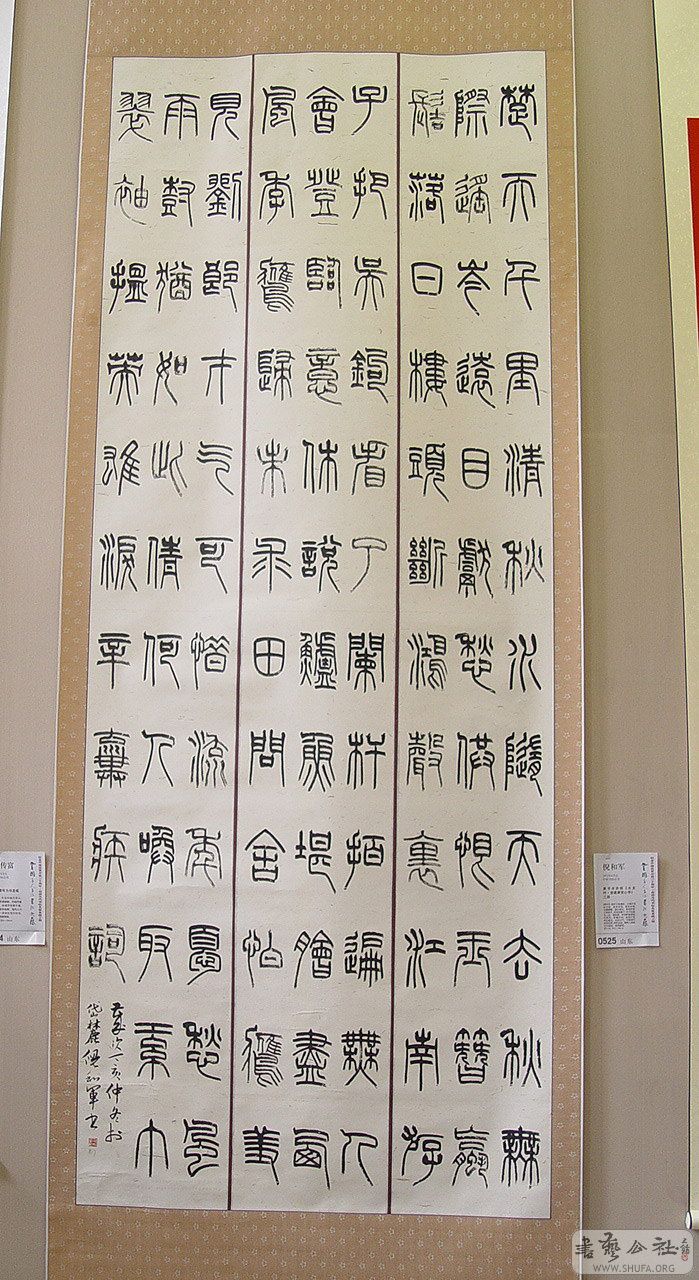 楚天千里清秋水隨天去秋無
際遙岑遠目獻愁供恨玉簪螺
髻落日樓頭斷鴻聲裏江南游
子把吳鉤看了闌杆拍遍無人
會登臨意休說鱸魚堪膾盡西
風季鷹歸未求田問舍怕應羞
見劉郎才氣可惜流年憂愁風
雨樹猶如此倩何人喚取巾
翠袖揾英雄淚辛棄疾詞
歲次丁亥仲冬於
岱麓倪和軍書
倪和军
0525 山东
传富
4 山东
書藝公社
WWW.SHUFA.ORG